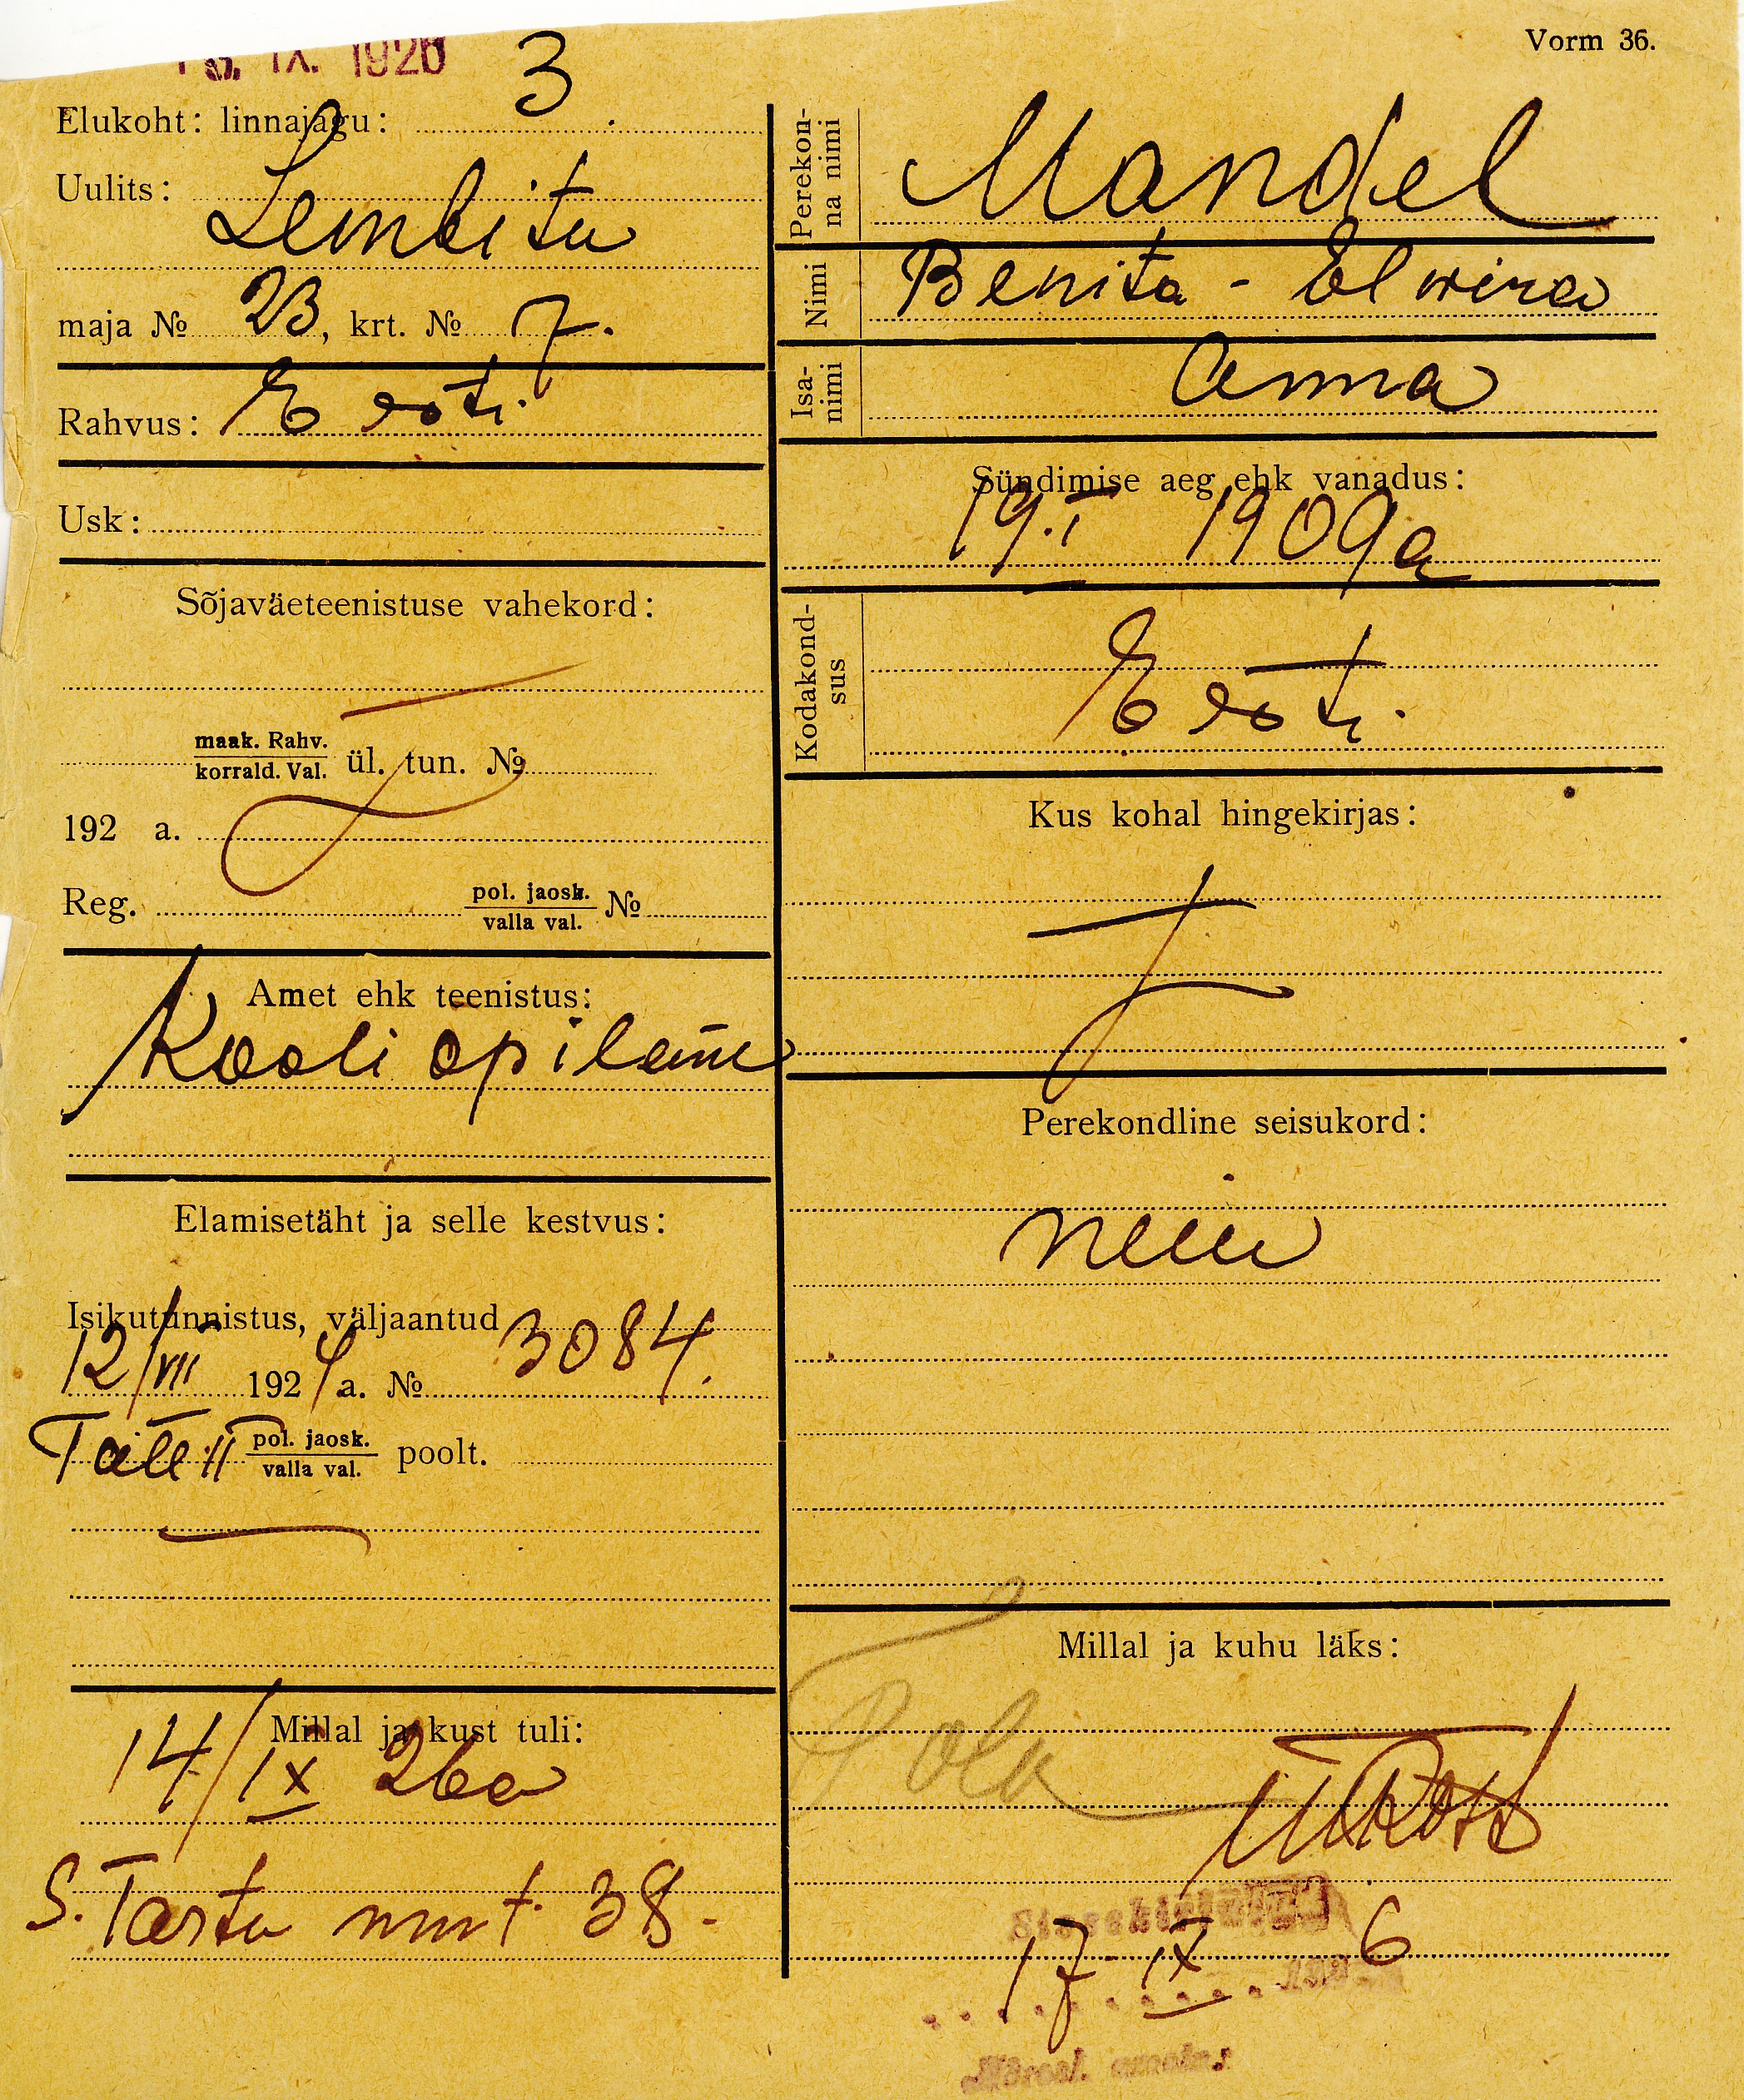 IX. 1926
Vorm 36.
Elukoht: linnajagu: 3
Uulits:
Lembitu
maja № 23, krt. № 7.
Rahvus: Eesti
Usk:
Sõjaväeteenistuse vahekord:
maak. Rahv.
korrald. Val. ül. tun. №
192 a.
Reg. pol. jaosk.
valla val. №
Amet ehk teenistus:
Kooliõpilane
Elamisetäht ja selle kestvus:
Isikutunnistus, väljaantud 3084.
12/VII 1924 a. №
Tall II pol. jaosk.
valla val. poolt.
Millal ja kust tuli:
14/IX 26 a
S. Tartu mnt. 38.
Perekon-
na nimi Mandel
Nimi Benita - Elwira
Isa-
nimi Anna
Sündimise aeg ehk vanadus:
19.I 1909 a
Kodakond-
sus Eesti.
Kus kohal hingekirjas:
Perekondline seisukord:
neiu
Millal ja kuhu läks:
17 IX 6